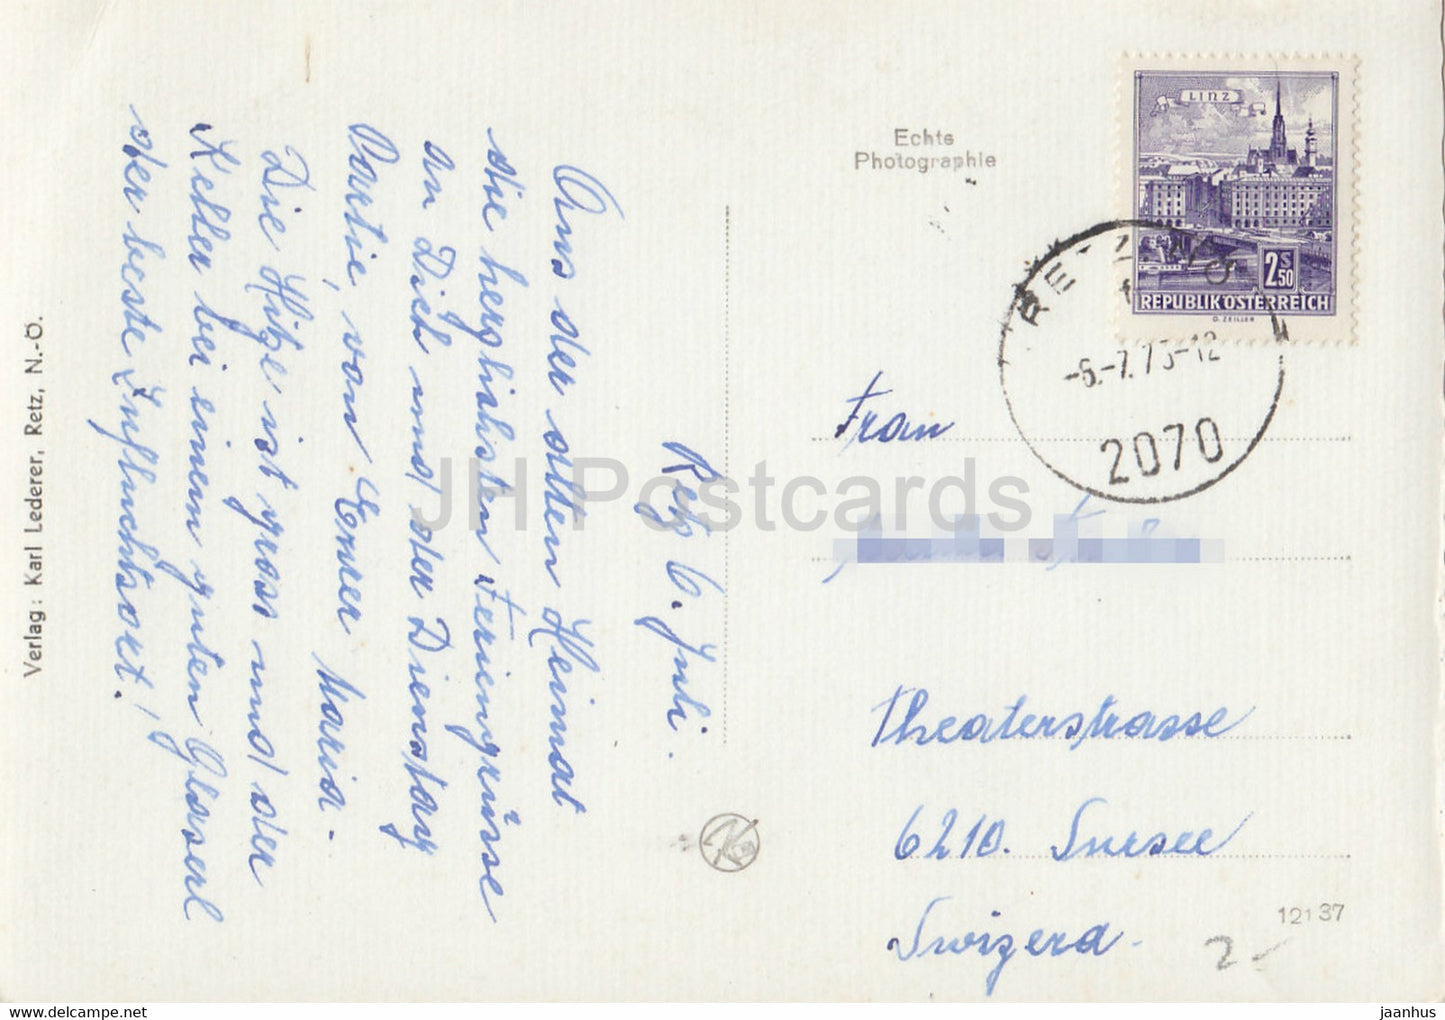 Retz 6. Juli.
Aus der alten Heimat
die herzlichsten Feriengrüsse
an Dich und der Dienstag
Partie, von Eurer Maria.
Die Hitze ist gross und der
Keller bei einem guten Glaserl
der beste Zufluchtsort!
Verlag: Karl Lederer, Retz, N.-Ö.
Echte
Photographie
LINZ
2 S 50
REPUBLIK ÖSTERREICH
O. ZEILLER
RETZ, NÖ
-6.-7.75-12
2070
Frau
Theaterstrasse
6210. Sursee
Swizera.
12137
2.-
JH Postcards
www.delcampe.net
jaanhus